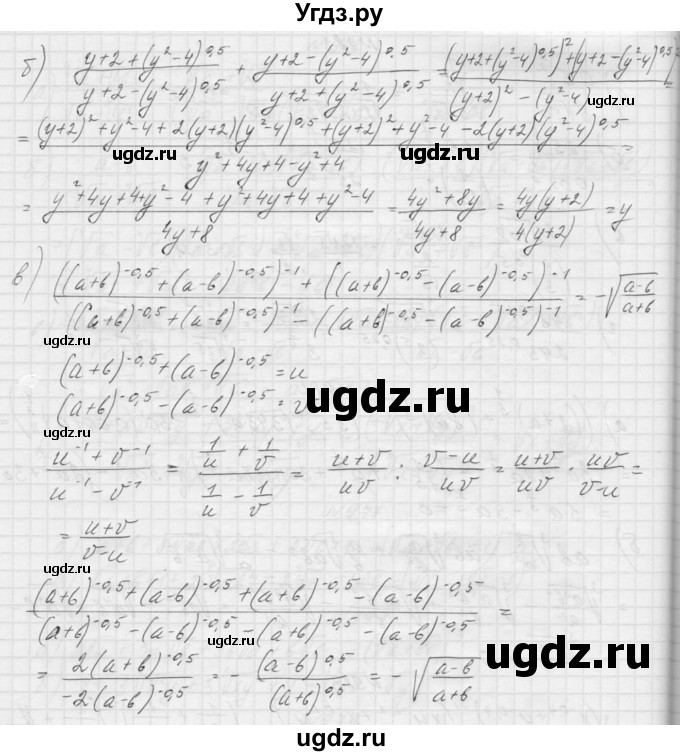 Угдз.ру
б) (y+2+(y²-4)^0,5)/(y+2-(y²-4)^0,5) + (y+2-(y²-4)^0.5)/(y+2+(y²-4)^0,5) = ((y+2+(y²-4)^0,5)²+(y+2-(y²-4)^0,5)²)/((y+2)²-(y²-4)) =
= ((y+2)²+y²-4+2(y+2)(y²-4)^0,5+(y+2)²+y²-4-2(y+2)(y²-4)^0,5)/(y²+4y+4-y²+4) =
ugdz.ru ugdz.ru
= (y²+4y+4+y²-4+y²+4y+4+y²-4)/(4y+8) = (4y²+8y)/(4y+8) = 4y(y+2)/4(y+2) = y
ugdz.ru
в) (((a+b)^-0,5+(a-b)^-0,5)^-1+((a+b)^-0,5-(a-b)^-0,5)^-1)/(((a+b)^-0,5+(a-b)^-0,5)^-1-((a+b)^-0,5-(a-b)^-0,5)^-1) = -√((a-b)/(a+b))
(a+b)^-0,5+(a-b)^-0,5=u
ugdz.ru ugdz.ru
(a+b)^-0,5-(a-b)^-0,5=v
(u^-1+v^-1)/(u^-1-v^-1) = (1/u+1/v)/(1/u-1/v) = (u+v)/uv : (v-u)/uv = (u+v)/uv · uv/(v-u) =
ugdz.ru
= (u+v)/(v-u)
ugdz.ru
((a+b)^-0,5+(a-b)^-0,5+(a+b)^-0,5-(a-b)^-0,5)/((a+b)^-0,5-(a-b)^-0,5-(a+b)^-0,5-(a-b)^-0,5) =
ugdz.ru ugdz.ru
= 2(a+b)^-0,5/-2(a-b)^-0,5 = -(a-b)^0,5/(a+b)^0,5 = -√((a-b)/(a+b))
ugdz.ru